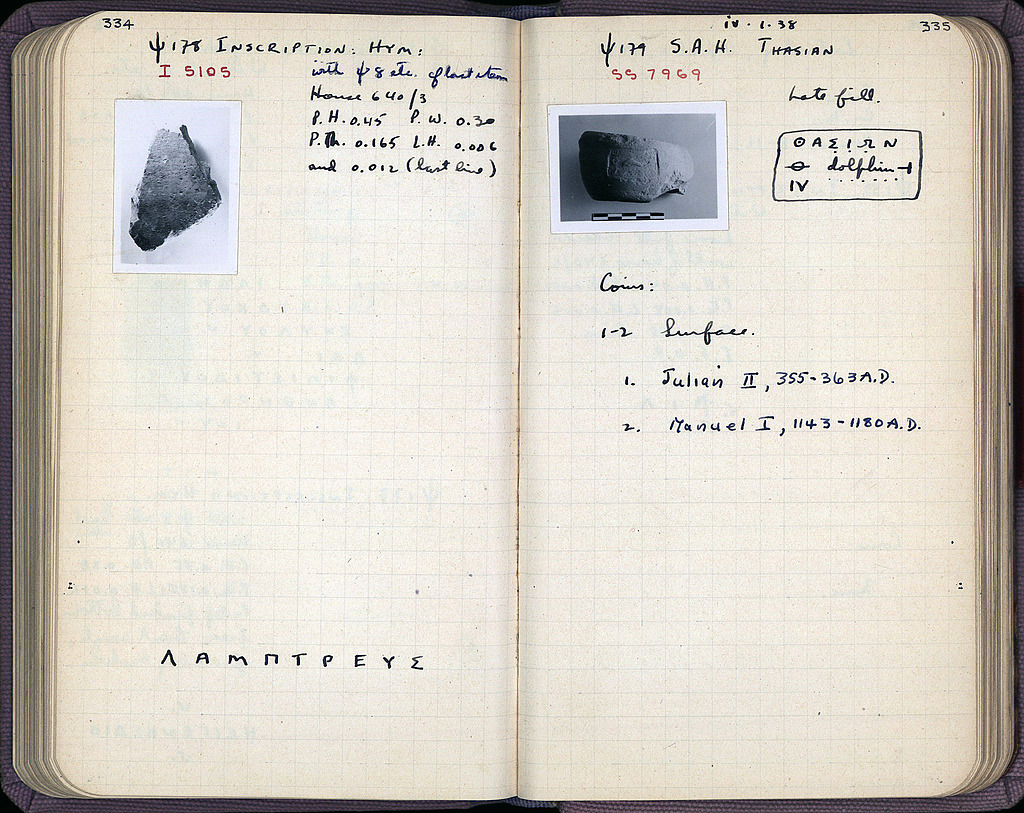 334
Ψ178 INSCRIPTION: HYM:
I 5105
with Ψ 8 etc. of last item
House 640/3
P.H. 0.45 P.W. 0.30
P.Th. 0.165 L.H. 0.006
and 0.012 (last line)
ΛΑΜΠΤΡΕΥΣ
IV·1·38
335
Ψ179 S.A.H. THASIAN
SS 7969
Late fill.
ΘΑΣΙΩΝ
dolphin
IV
Coins:
1-2 Surface.
1. Julian II, 355-363 A.D.
2. Manuel I, 1143-1180 A.D.